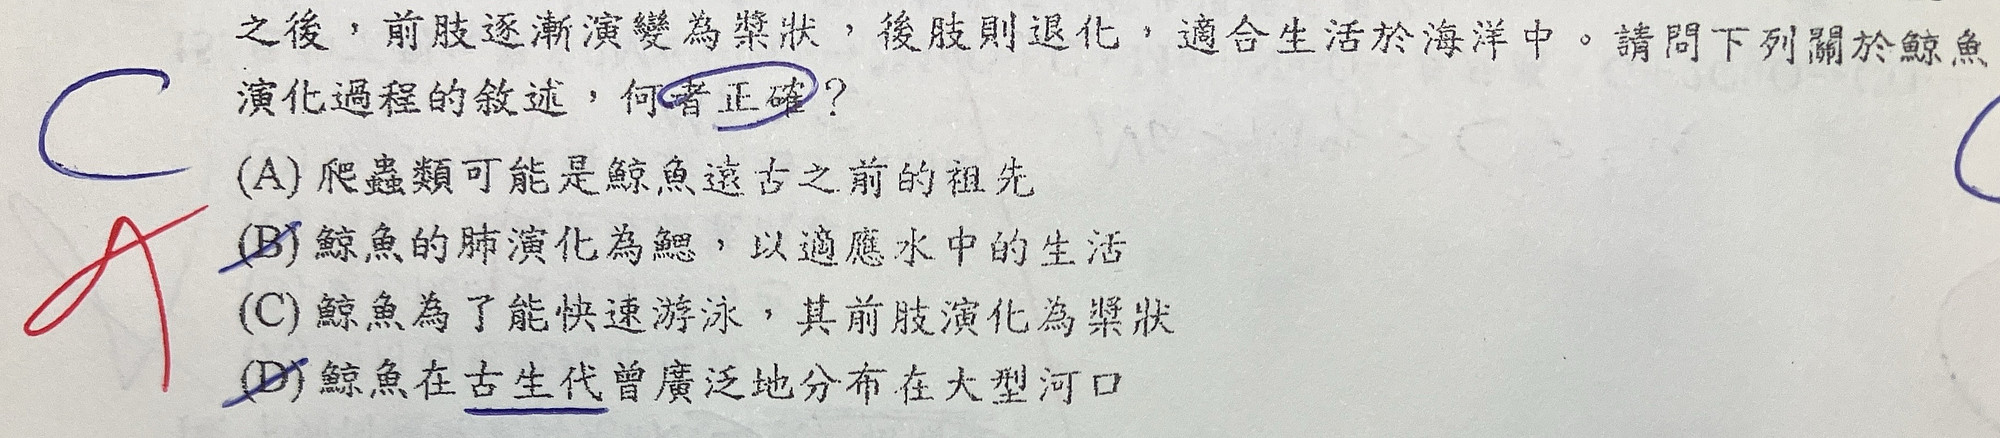 之後，前肢逐漸演變為槳狀，後肢則退化，適合生活於海洋中。請問下列關於鯨魚
演化過程的敘述，何者正確？
C
(A) 爬蟲類可能是鯨魚遠古之前的祖先
A
(B) 鯨魚的肺演化為鰓，以適應水中的生活
(C) 鯨魚為了能快速游泳，其前肢演化為槳狀
(D) 鯨魚在古生代曾廣泛地分布在大型河口